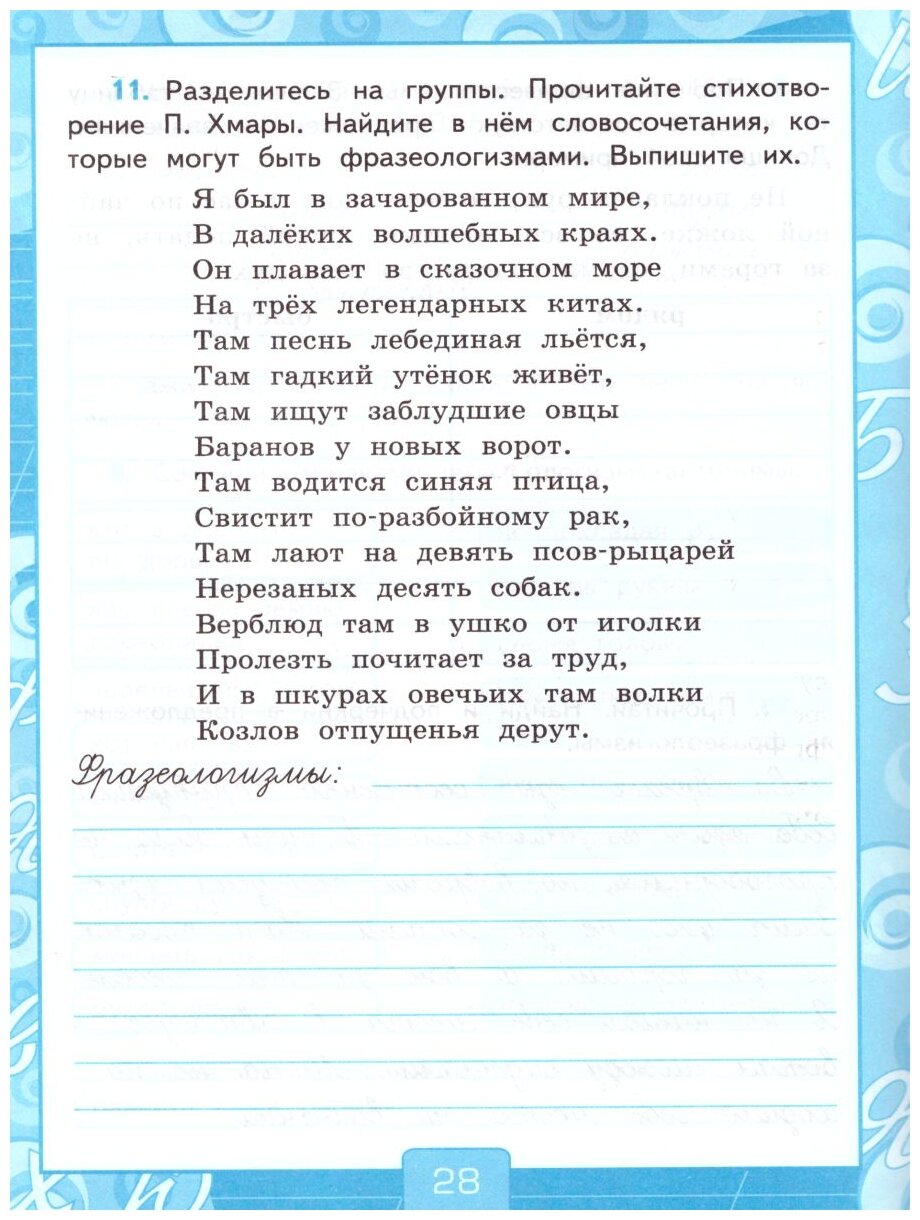 11. Разделитесь на группы. Прочитайте стихотво-
рение П. Хмары. Найдите в нём словосочетания, ко-
торые могут быть фразеологизмами. Выпишите их.
Я был в зачарованном мире,
В далёких волшебных краях.
Он плавает в сказочном море
На трёх легендарных китах.
Там песнь лебединая льётся,
Там гадкий утёнок живёт,
Там ищут заблудшие овцы
Баранов у новых ворот.
Там водится синяя птица,
Свистит по-разбойному рак,
Там лают на девять псов-рыцарей
Нерезаных десять собак.
Верблюд там в ушко от иголки
Пролезть почитает за труд,
И в шкурах овечьих там волки
Козлов отпущенья дерут.
Фразеологизмы:
28